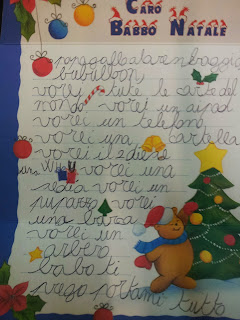 CARO
BABBO NATALE
babulbon
vorei tute le carte del
mondo vorei un aipad
vorei un telefono
vorei una cartella
vorei il 2
vorei una
vorei un
pupazzo vorei
una barca
vorei un
arbero
babo ti
prego portami tutto